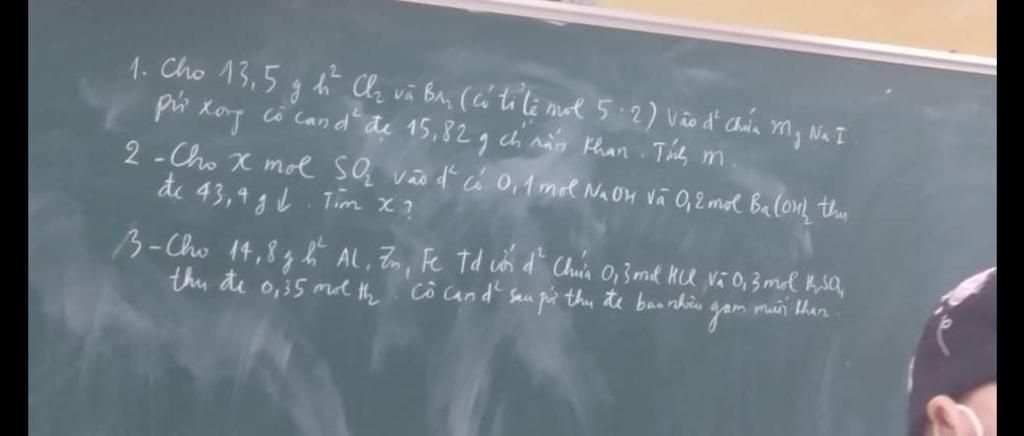 1. Cho 13,5 g h² Cl₂ và Br₂ (có tỉ lệ mol 5:2) vào d² chứa m g NaI.
pứ xong cô cạn d² đc 15,82 g ch rắn khan. Tính m.
2 - Cho x mol SO₂ vào d² có 0,1 mol NaOH và 0,2 mol Ba(OH)₂ thu
đc 43,4 g ↓. Tìm x?
3 - Cho 14,8 g h² Al, Zn, Fe Td với d² chứa 0,3 mol HCl và 0,3 mol H₂SO₄
thu đc 0,35 mol H₂. Cô cạn d² sau pứ thu đc bao nhiêu gam muối khan.